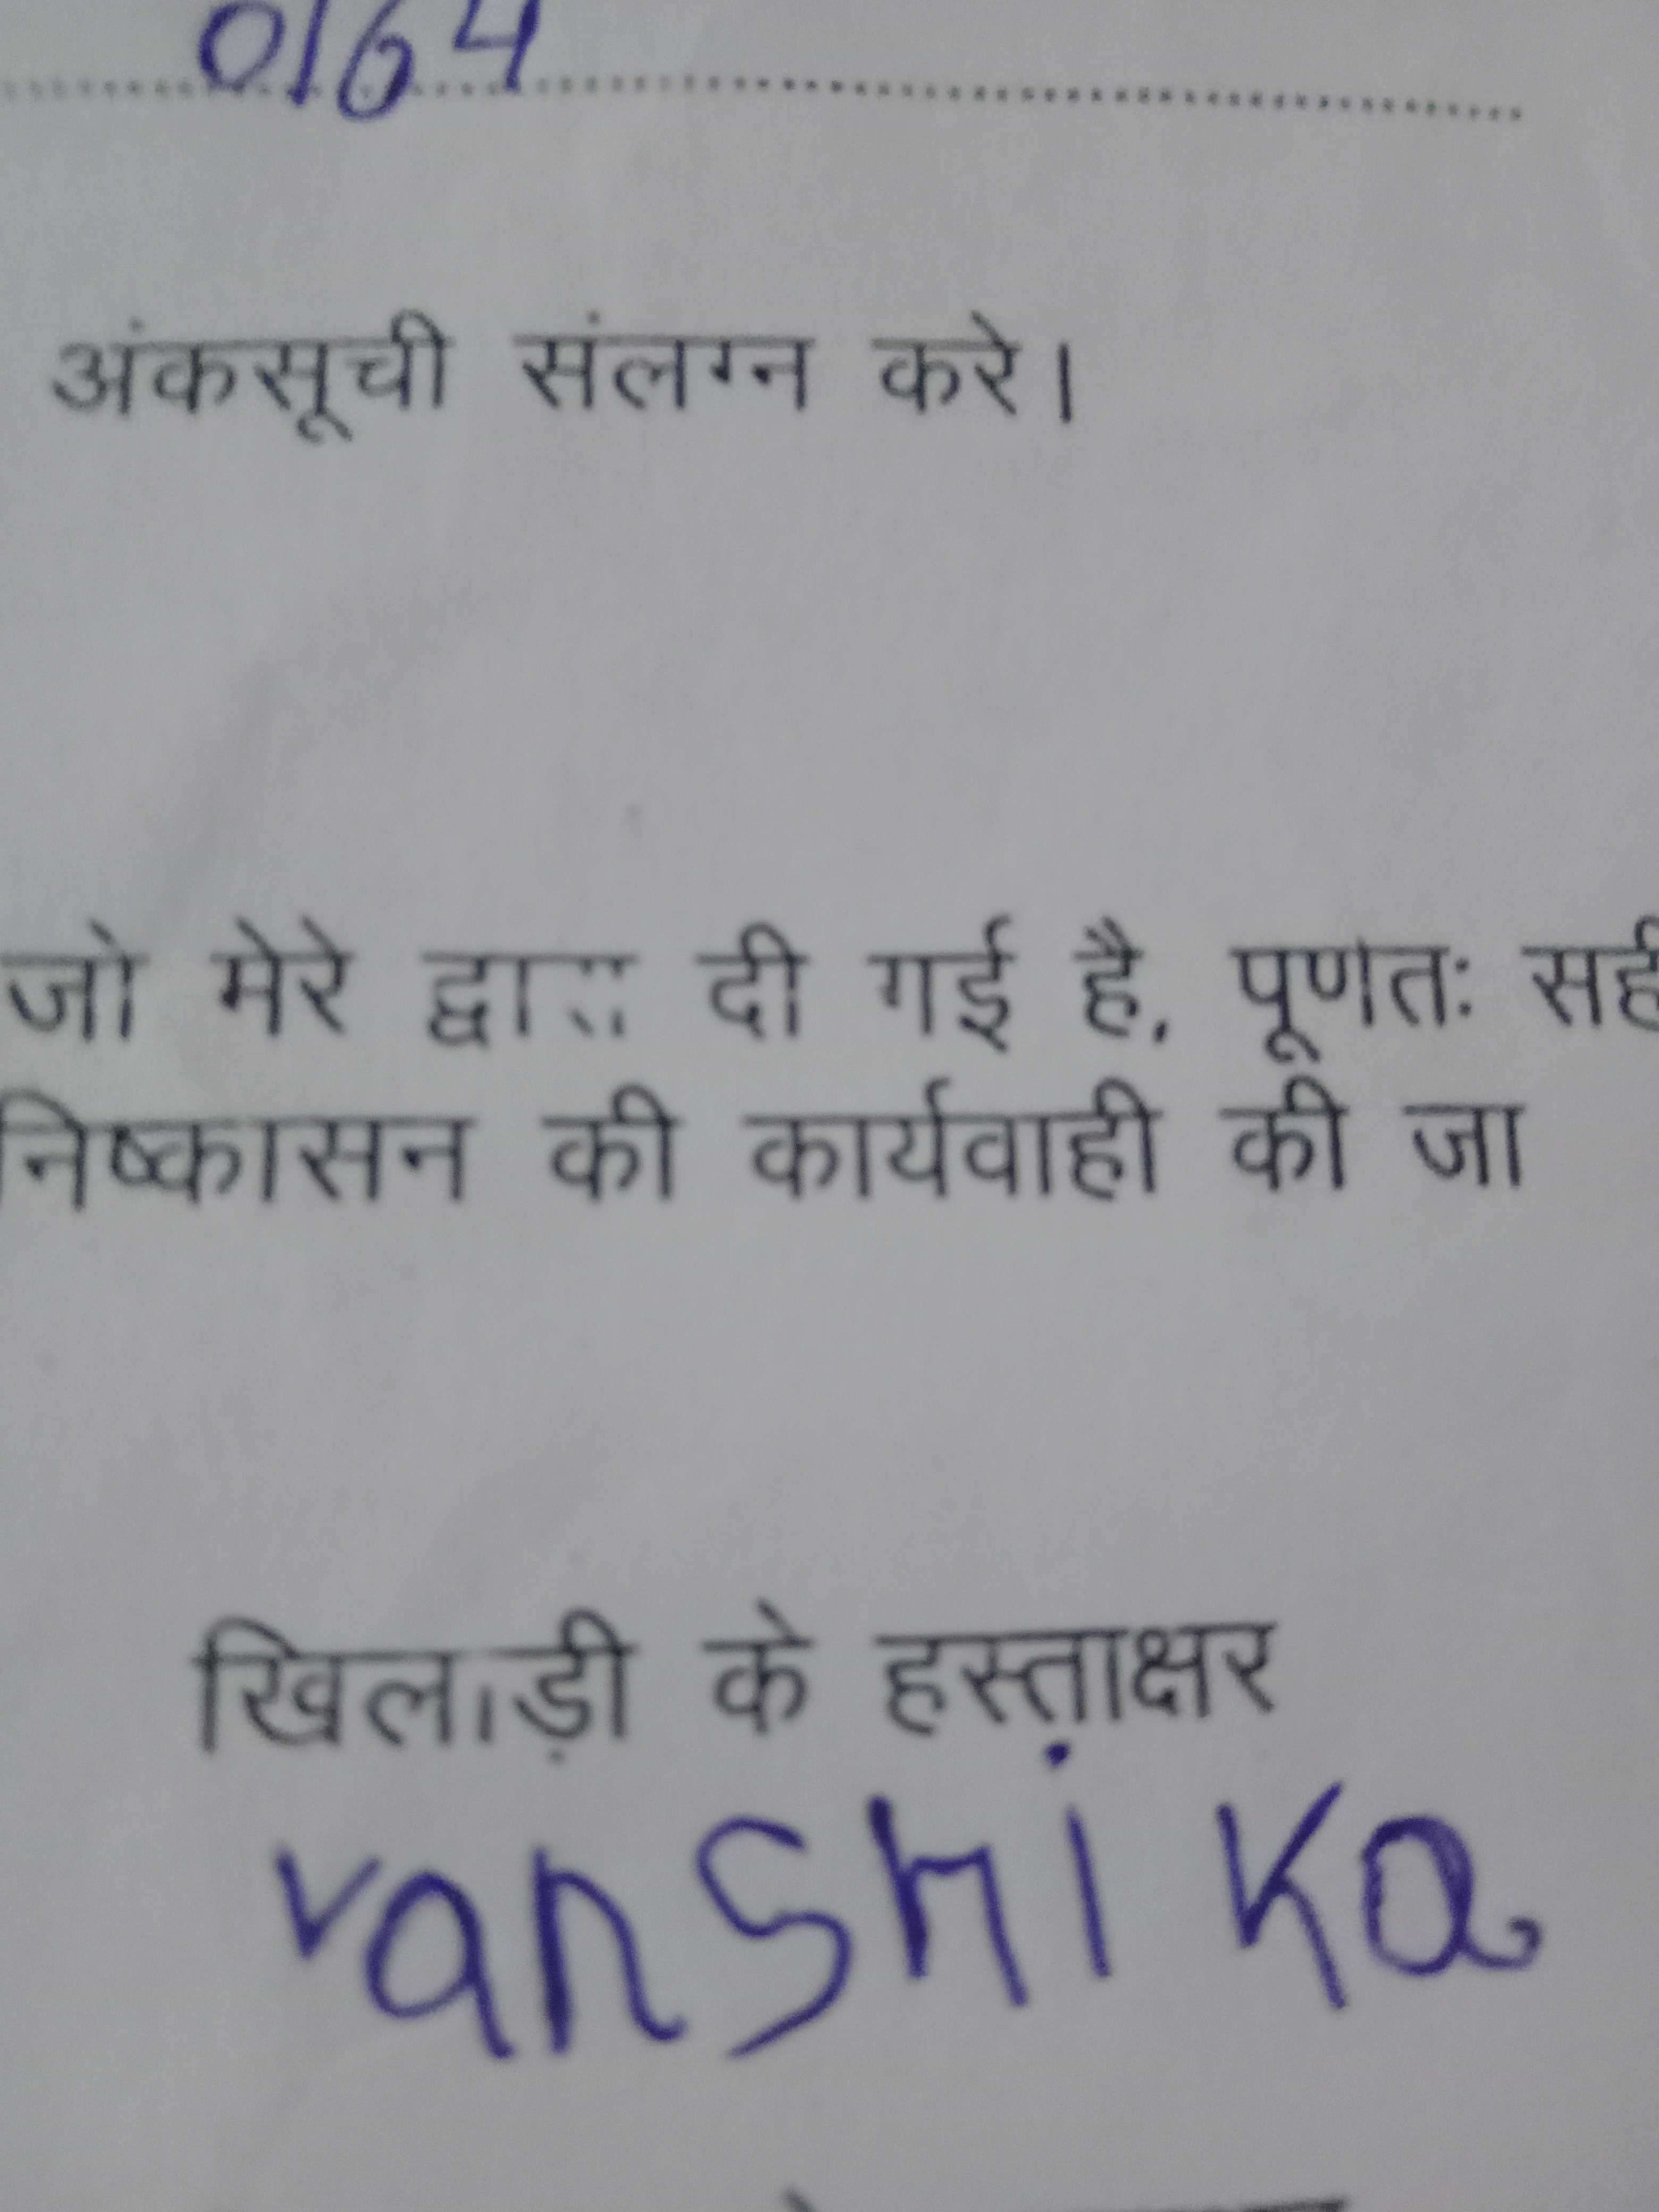 0164
अंकसूची संलग्न करे।
जो मेरे द्वारा दी गई है, पूर्णतः
निष्कासन की कार्यवाही की जा
खिलाड़ी के हस्ताक्षर
vanshika